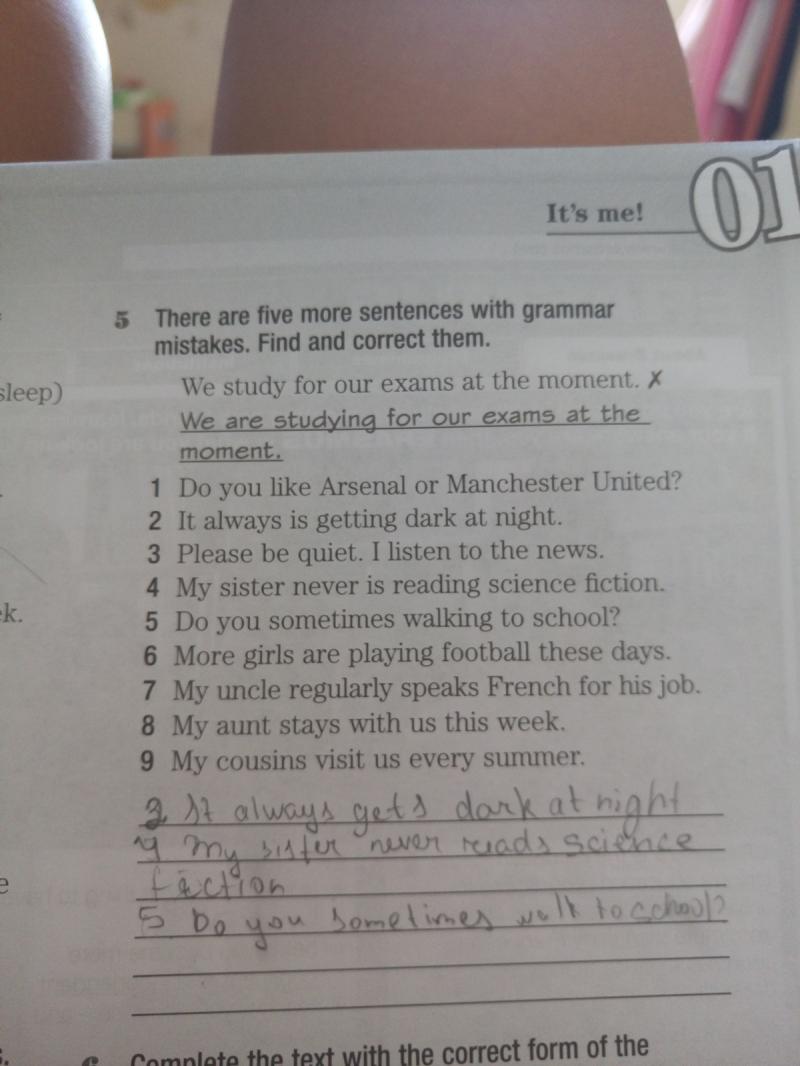 It's me!
01
5 There are five more sentences with grammar
mistakes. Find and correct them.
sleep)
We study for our exams at the moment. ✗
We are studying for our exams at the
moment.
1 Do you like Arsenal or Manchester United?
2 It always is getting dark at night.
3 Please be quiet. I listen to the news.
4 My sister never is reading science fiction.
5 Do you sometimes walking to school?
ek.
6 More girls are playing football these days.
7 My uncle regularly speaks French for his job.
8 My aunt stays with us this week.
9 My cousins visit us every summer.
2 It always gets dark at night
4 My sister never reads science
fiction
e
5 Do you sometimes walk to school?
s.
6 Complete the text with the correct form of the